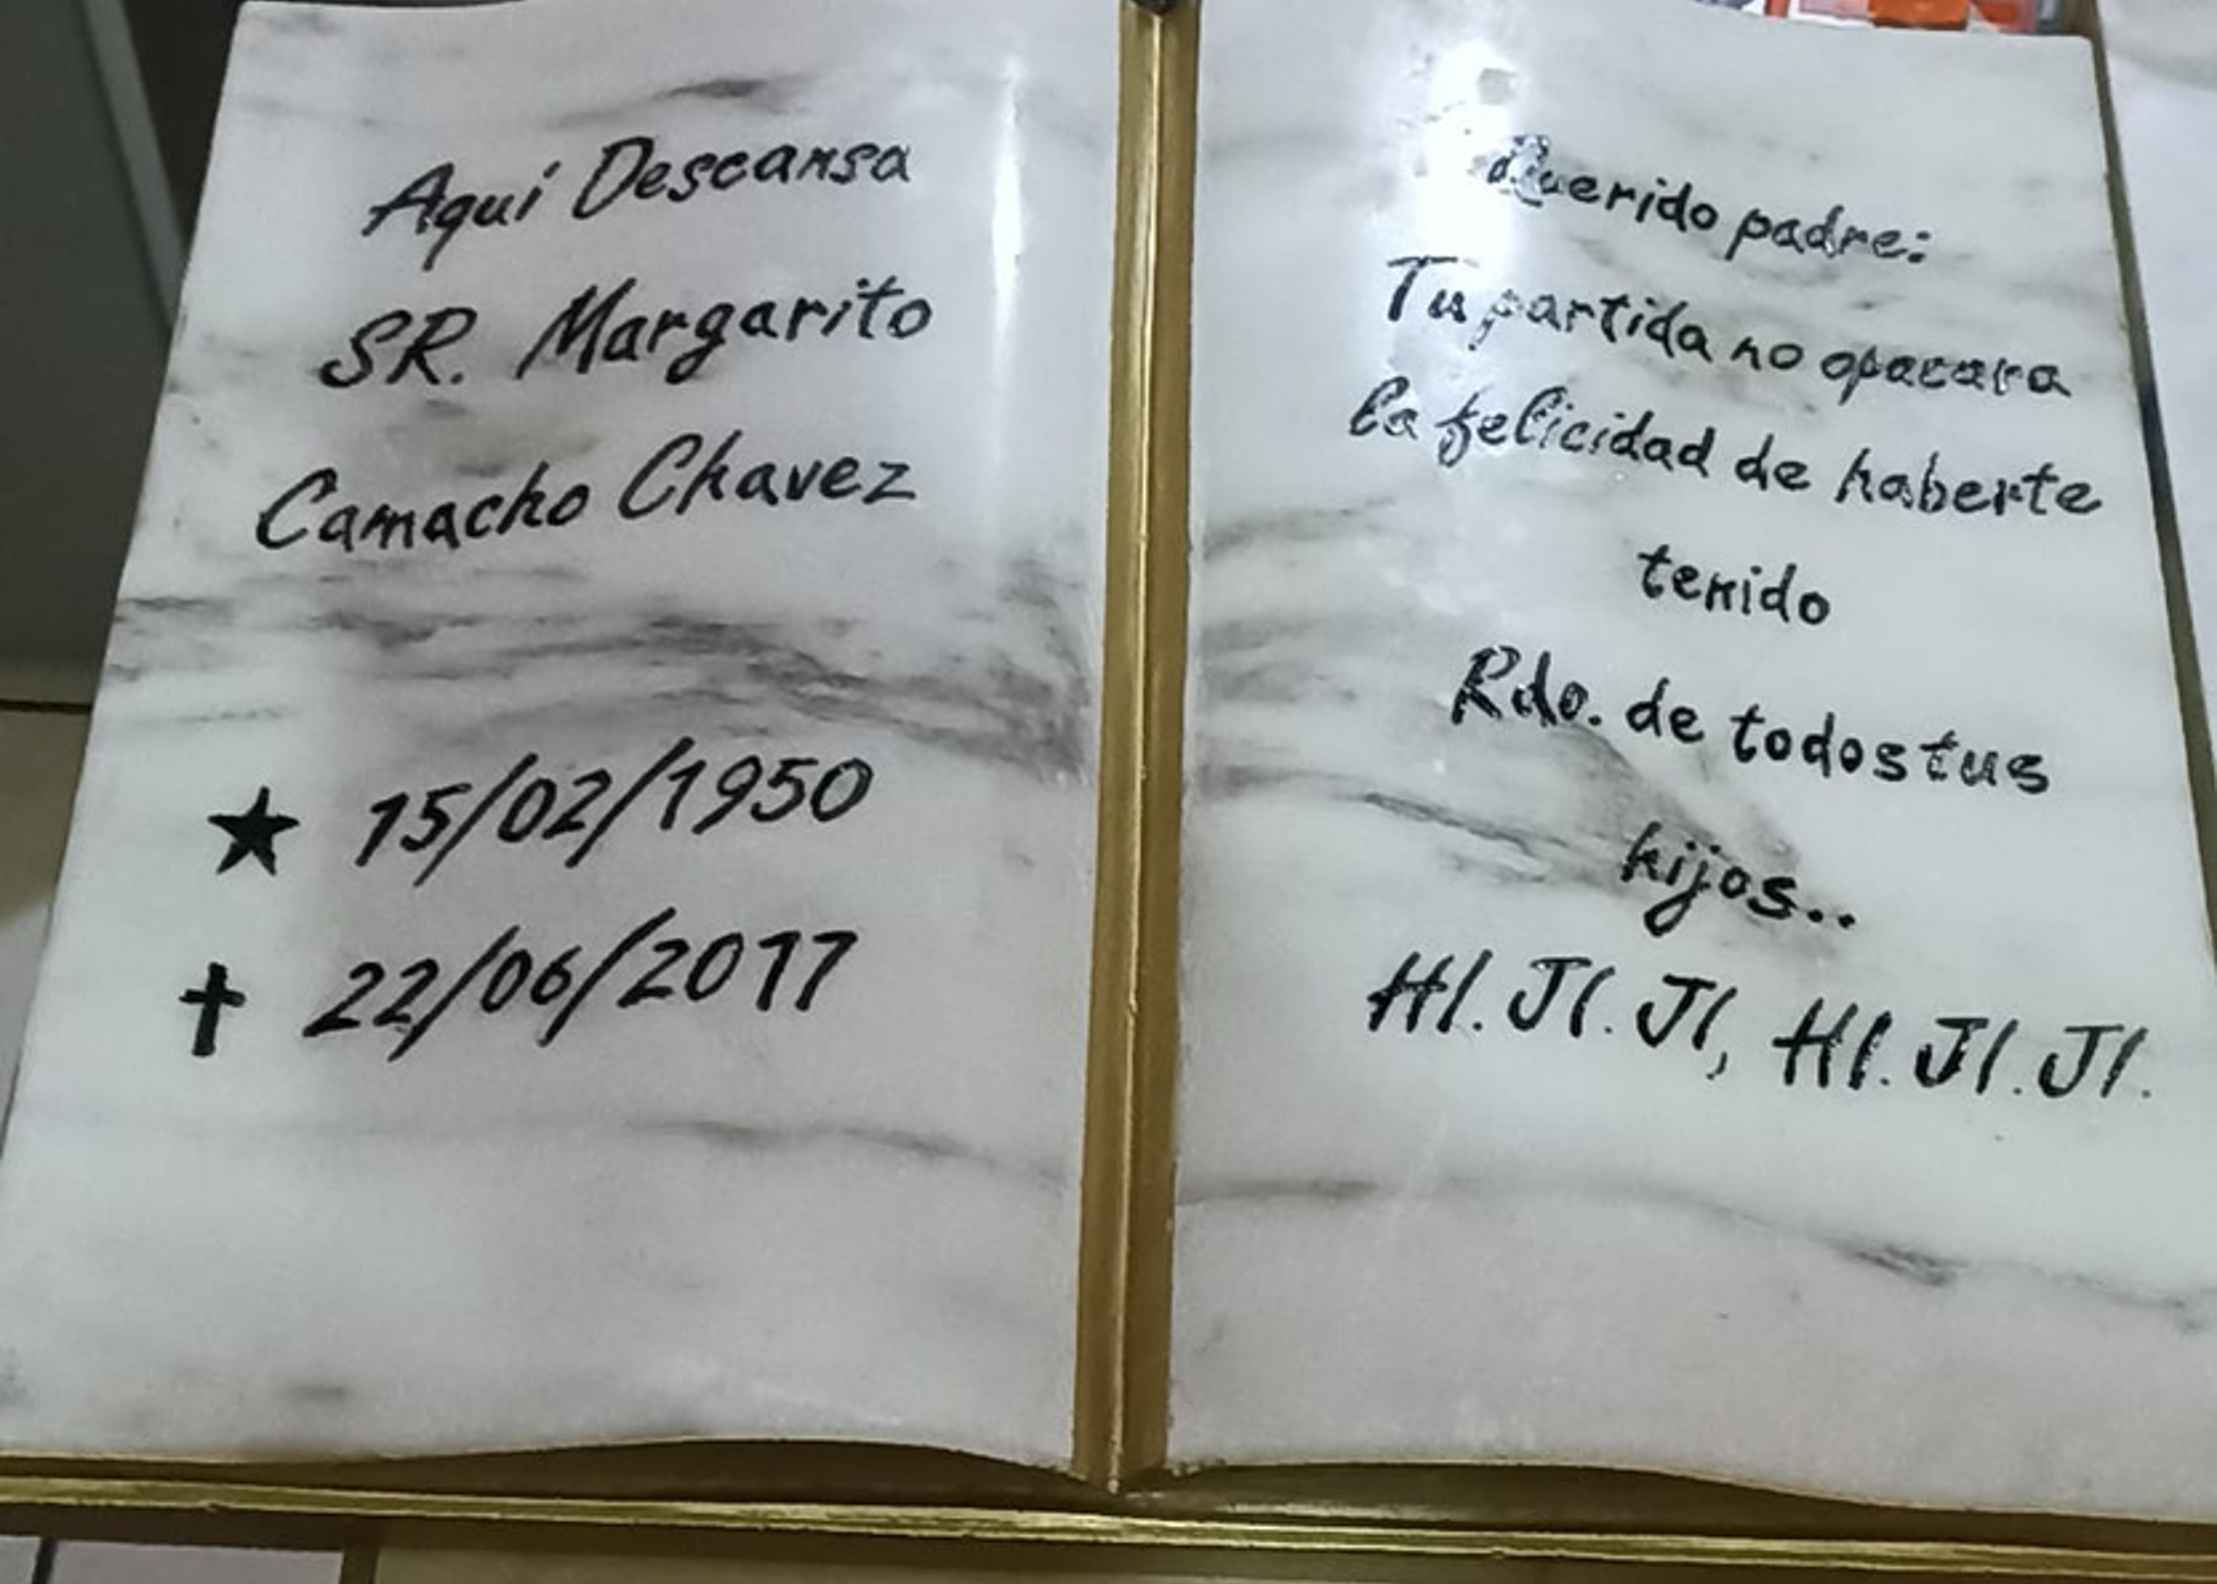 Aquí Descansa
SR. Margarito
Camacho Chavez
★ 15/02/1950
✝ 22/06/2017
Querido padre:
Tu partida no opacara
la felicidad de haberte
tenido
Rdo. de todos tus
hijos..
HI. JI. JI, HI. JI. JI.